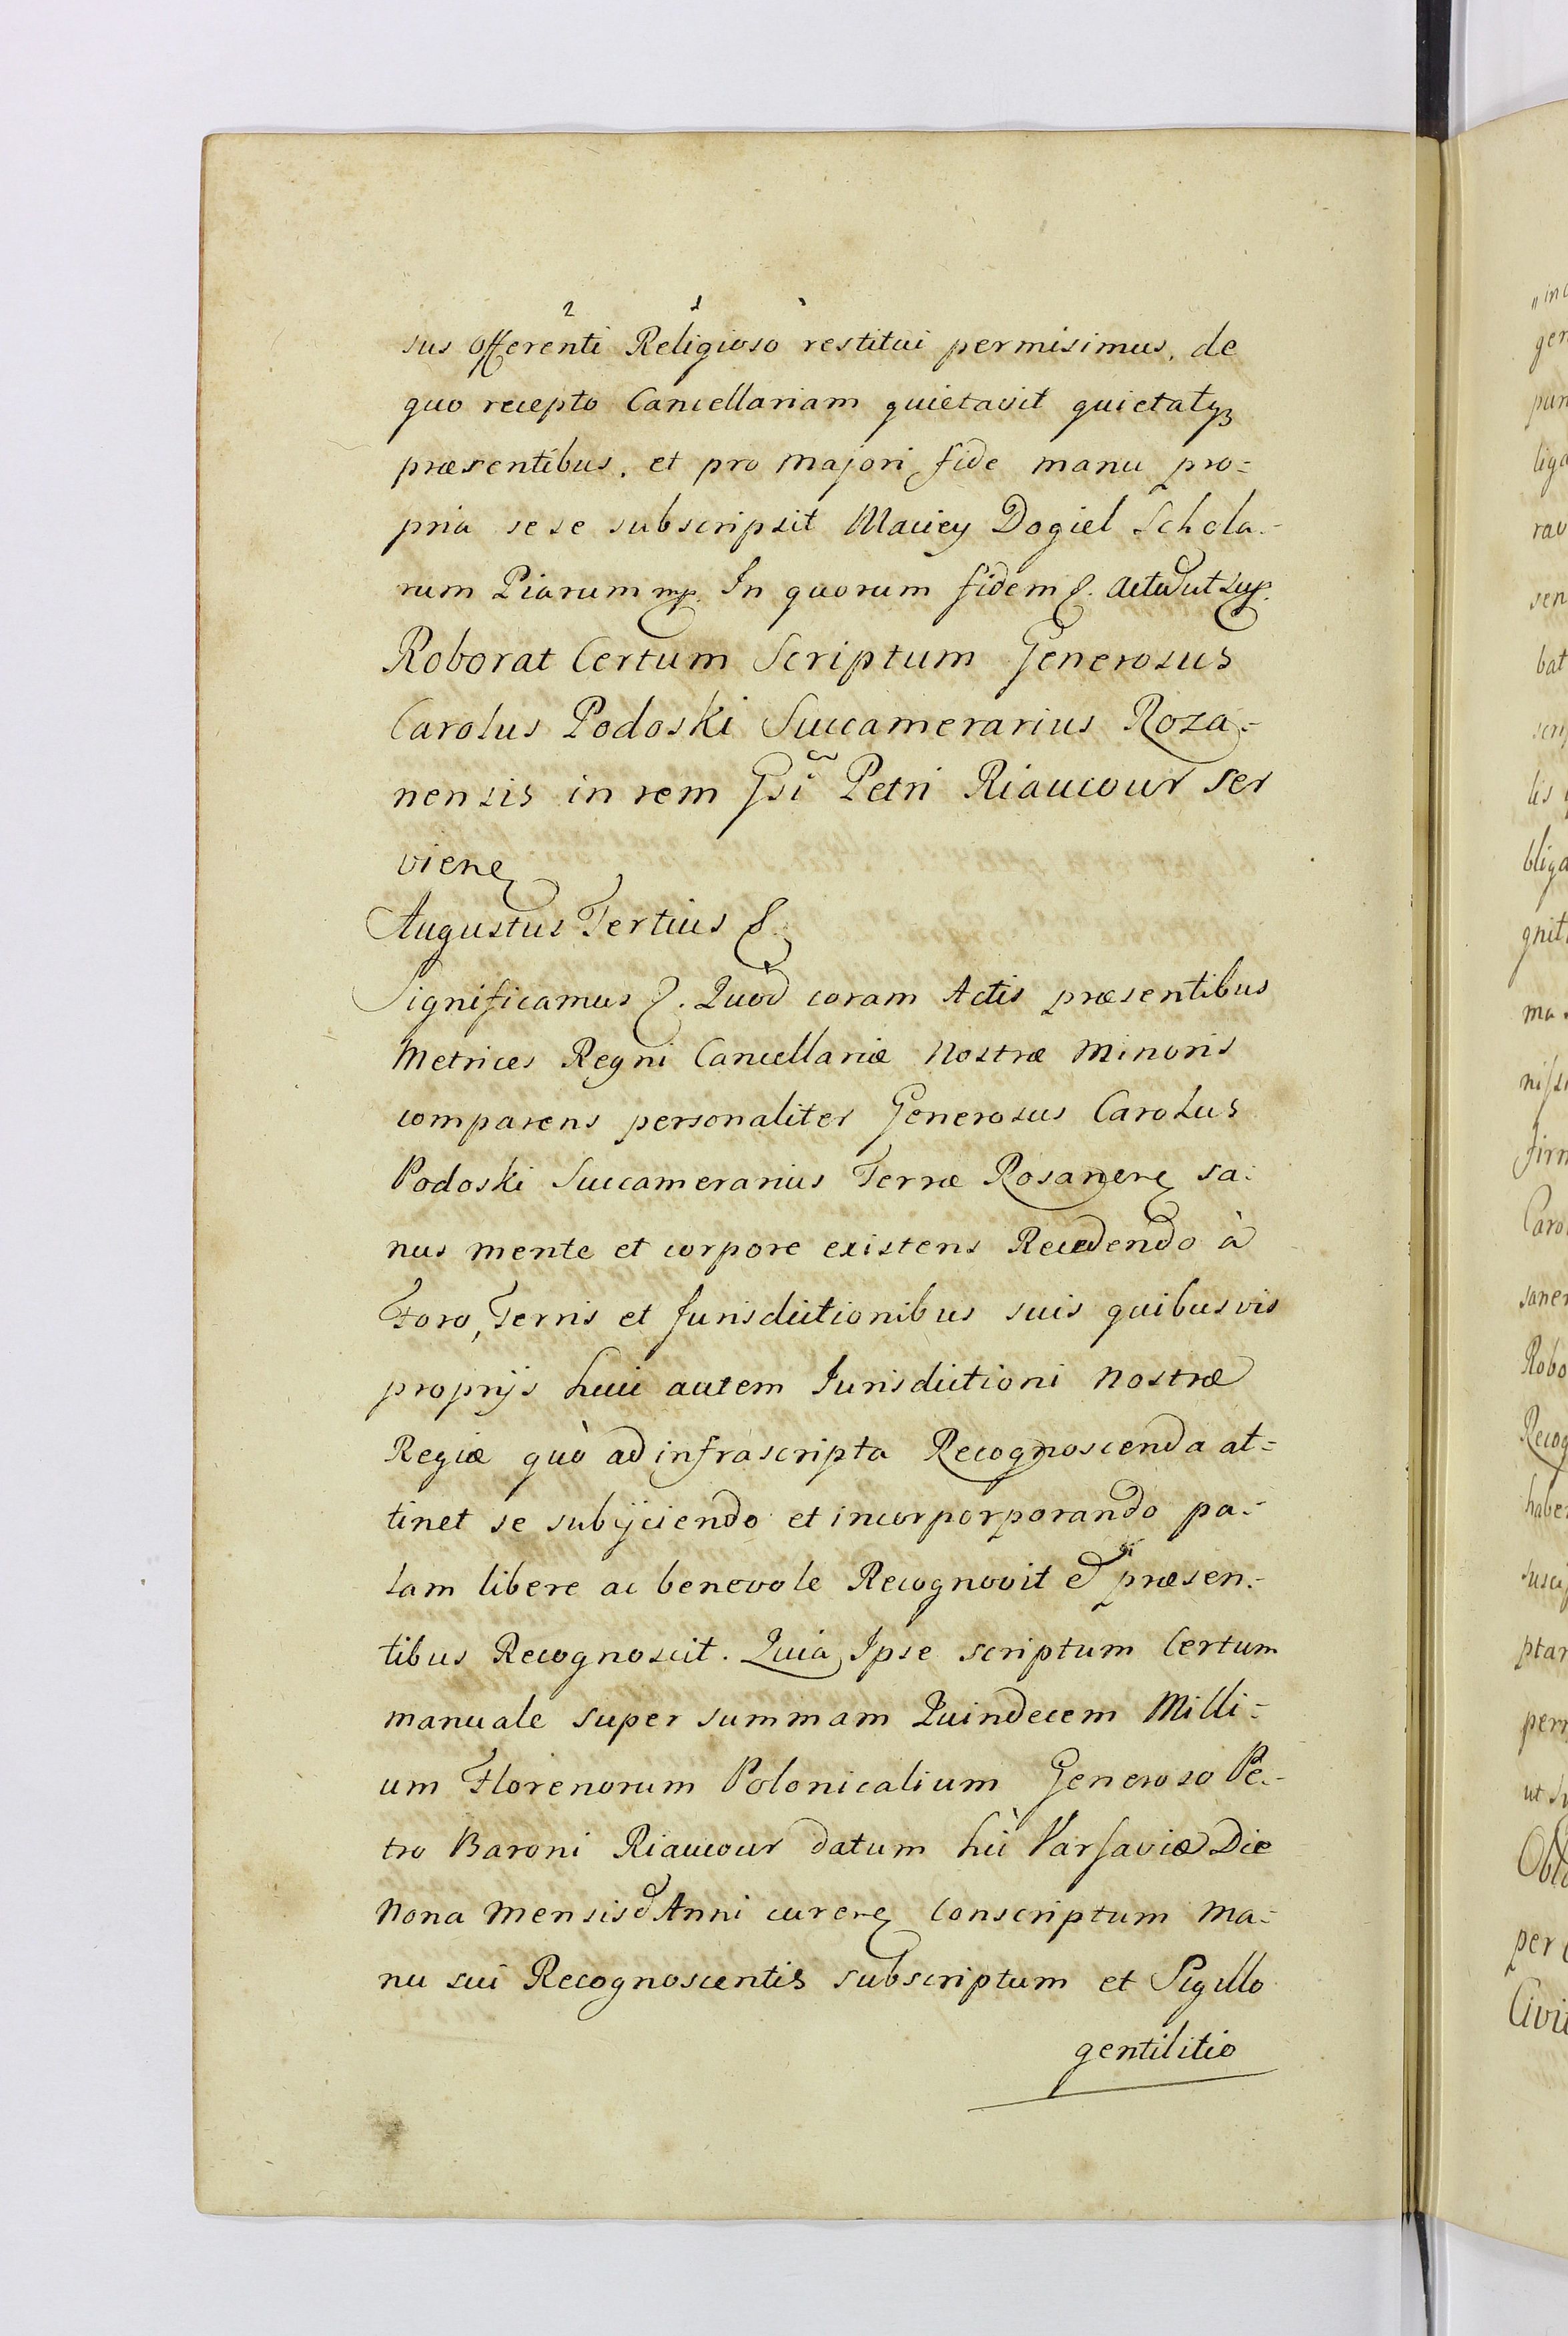 sus Offerenti Religioso restitui permisimus, de
quo recepto Cancellariam quietavit quietatqꝫ
præsentibus, et pro majori fide manu pro=
pria sese subscripsit Maciey Dogiel Schola=
rum Piarum mp. In quorum fidem &. Actū ut sup.
Roborat Certum Scriptum Generosus
Carolus Podoski Succamerarius Roza=
nensis in rem Gsi Petri Riaucour ser
vieñ
Augustus Tertius &.
Significamus &. Quod coram Actis præsentibus
Metrices Regni Cancellariæ Nostræ Minoris
comparens personaliter Generosus Carolus
Podoski Succamerarius Terræ Rosaneñ sa=
nus mente et corpore existens Recedendo à
Foro, Terris et Jurisdictionibus suis quibusvis
proprijs huic autem Jurisdictioni Nostræ
Regiæ quò ad infrascripta Recognoscenda at=
tinet se subijciendo et incorporporando pa=
lam libere ac benevole Recognovit et præsen=
tibus Recognoscit. Quia Ipse scriptum Certum
manuale super summam Quindecem Milli=
um Florenorum Polonicalium Generoso Pe=
tro Baroni Riaucour datum hic Varsaviæ Die
Nona Mensis et Anni cureñ Conscriptum Ma=
nu sui Recognoscentis subscriptum et Sigillo
gentilitio